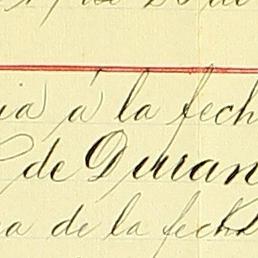 ia á la fech
de Durran
a de la fecha